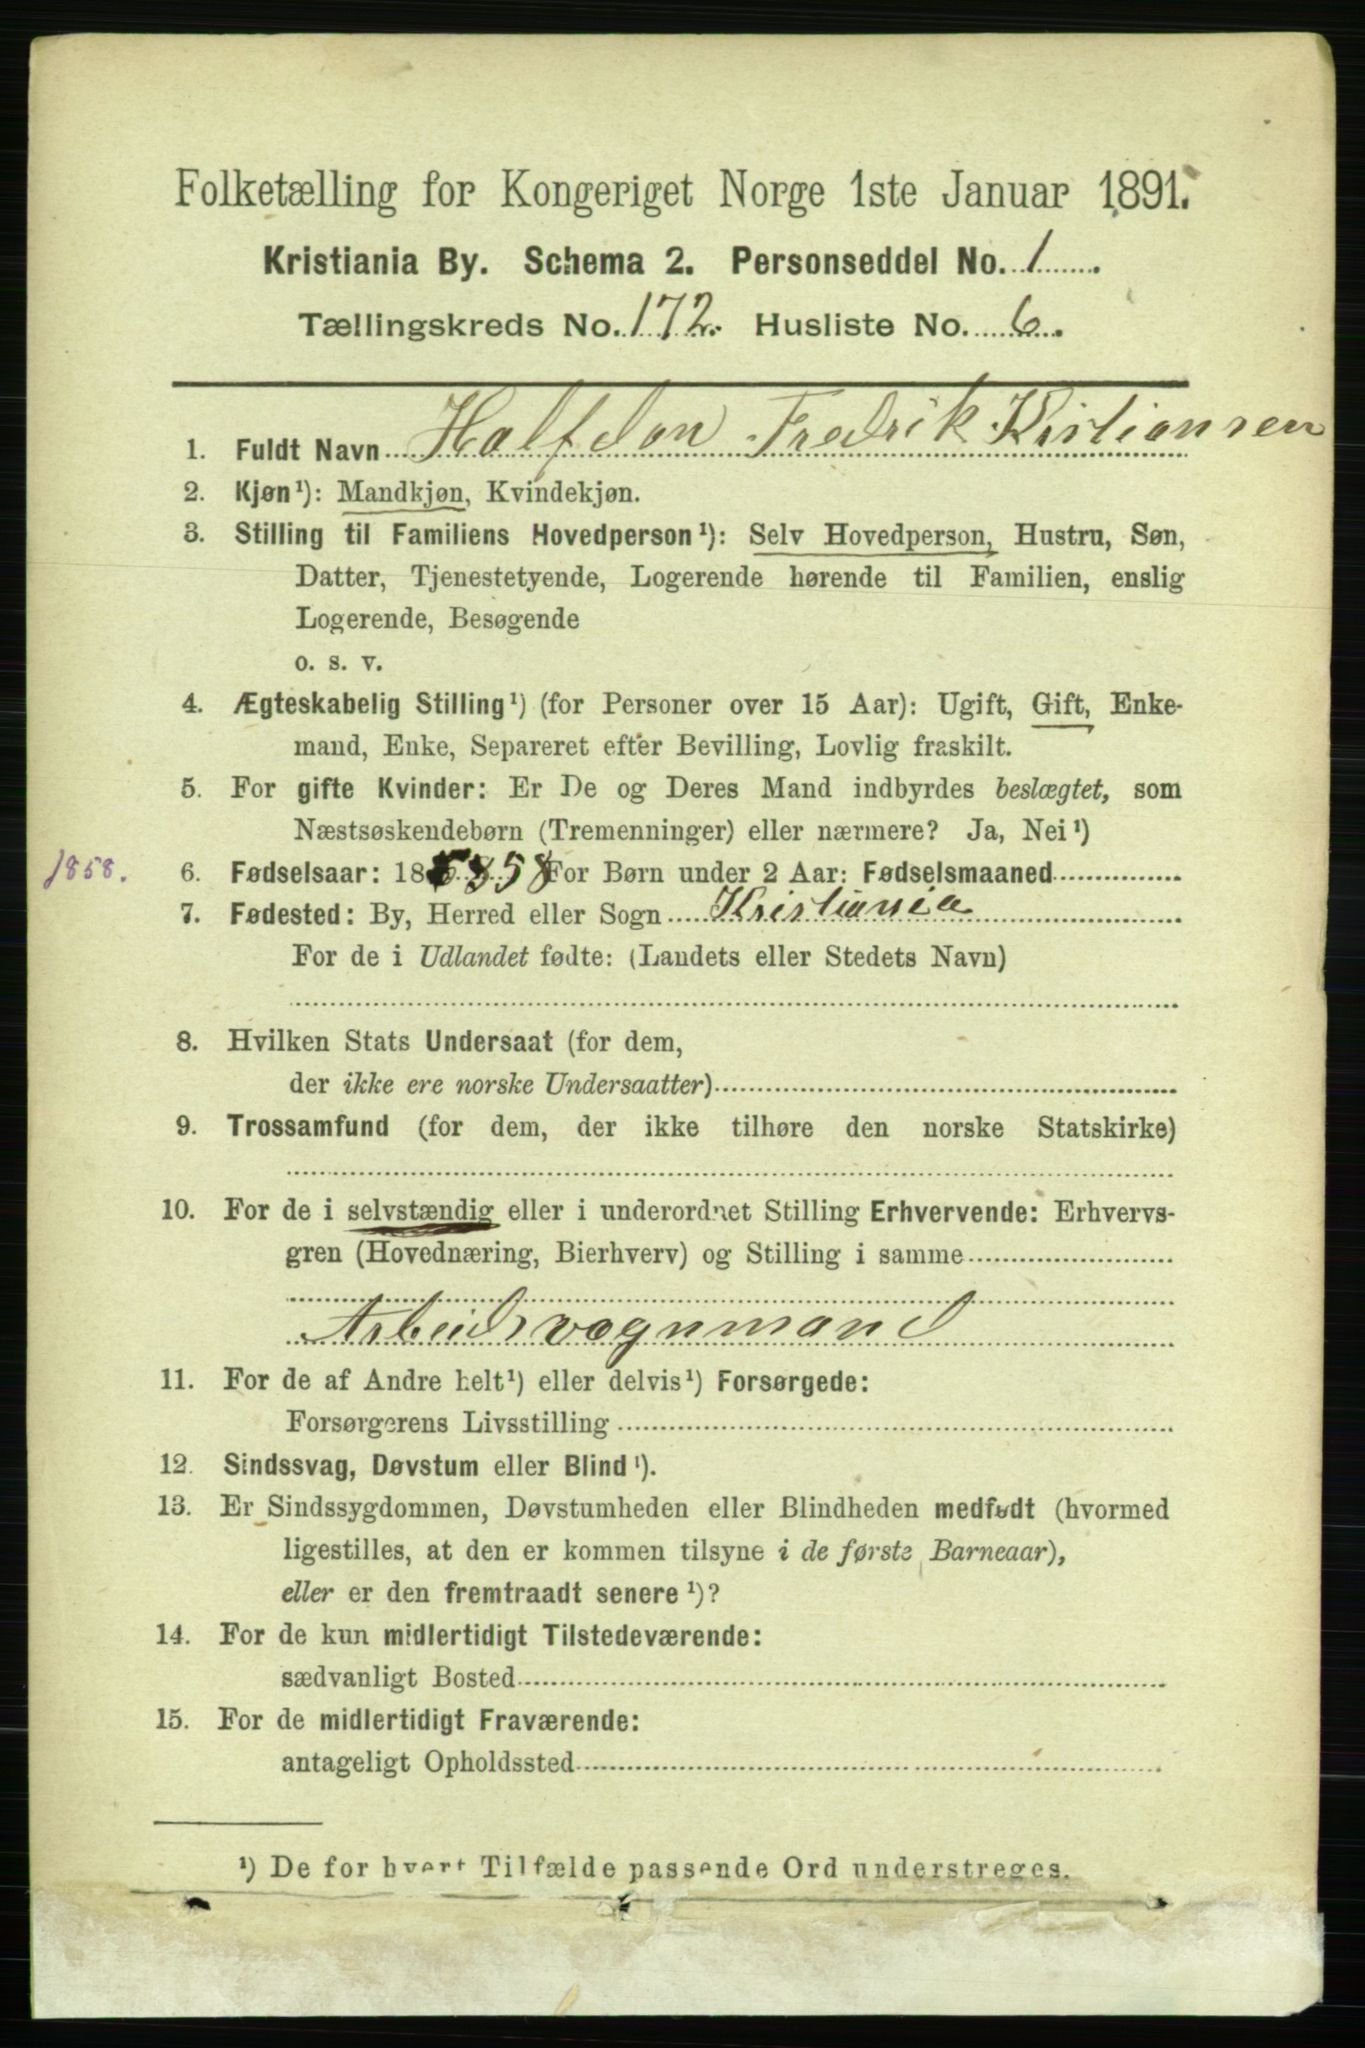 Folketælling for Kongeriget Norge 1ste Januar 1891.
Kristiania By. Schema 2. Personseddel No. 1
Tællingskreds No. 172. Husliste No. 6.
1. Fuldt Navn Halfdan Fredrik Kristiansen
2. Kjøn¹): Mandkjøn, Kvindekjøn.
3. Stilling til Familiens Hovedperson¹): Selv Hovedperson, Hustru, Søn,
Datter, Tjenestetyende, Logerende hørende til Familien, enslig
Logerende, Besøgende
o. s. v.
4. Ægteskabelig Stilling¹) (for Personer over 15 Aar): Ugift, Gift, Enke-
mand, Enke, Separeret efter Bevilling, Lovlig fraskilt.
5. For gifte Kvinder: Er De og Deres Mand indbyrdes beslægtet, som
Næstsøskendebørn (Tremenninger) eller nærmere? Ja, Nei¹)
1858. 6. Fødselsaar: 18 858 For Børn under 2 Aar: Fødselsmaaned
7. Fødested: By, Herred eller Sogn Kristiania
For de i Udlandet fødte: (Landets eller Stedets Navn)
8. Hvilken Stats Undersaat (for dem,
der ikke ere norske Undersaatter)
9. Trossamfund (for dem, der ikke tilhøre den norske Statskirke)
10. For de i selvstændig eller i underordnet Stilling Erhvervende: Erhvervs-
gren (Hovednæring, Bierhverv) og Stilling i samme
Arbeidsvognmand
11. For de af Andre helt¹) eller delvis¹) Forsørgede:
Forsørgerens Livsstilling
12. Sindssvag, Døvstum eller Blind¹).
13. Er Sindssygdommen, Døvstumheden eller Blindheden medfødt (hvormed
ligestilles, at den er kommen tilsyne i de første Barneaar),
eller er den fremtraadt senere¹)?
14. For de kun midlertidigt Tilstedeværende:
sædvanligt Bosted
15. For de midlertidigt Fraværende:
antageligt Opholdssted
¹) De for hvert Tilfælde passende Ord understreges.